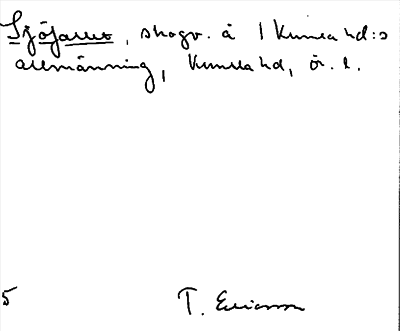 Sjöjarno, skogv. å 1 Kumla hd:s
allmänning, Kumla hd, ör. l.
5 T. Ericsson